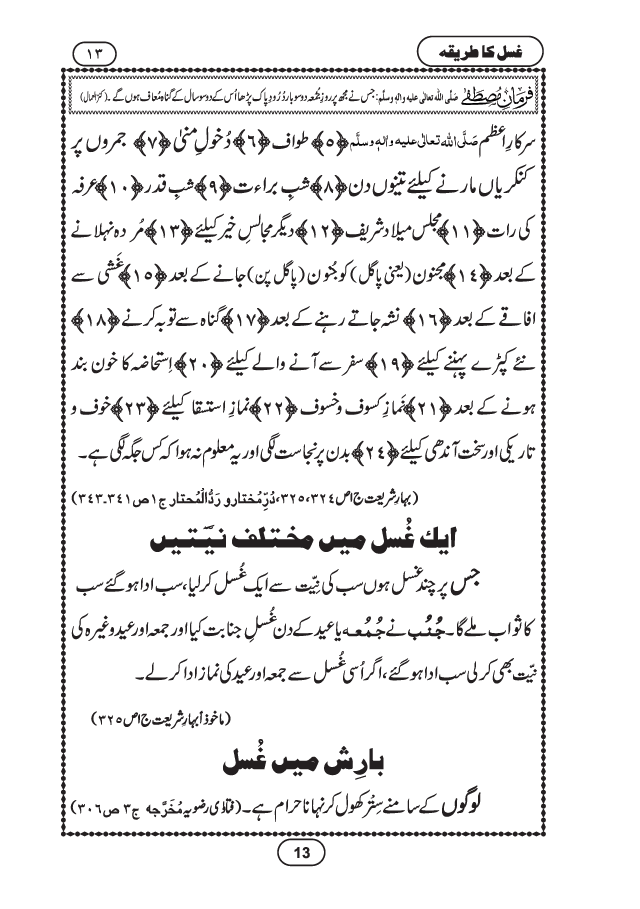 غسل کا طریقہ
۱۳
فرمانِ مصطفےٰ صلی اللہ تعالیٰ علیہ والہٖ وسلّم: جس نے مجھ پر روزِ جُمُعہ دو سو بار دُرُودِ پاک پڑھا اُس کے دو سو سال کے گناہ مُعاف ہوں گے۔ (کنز العمال)
سرکارِ اعظم صَلَّی اللّٰہ تعالیٰ علیہ واٰلہٖ وسلَّم ﴿۵﴾ طواف ﴿۶﴾ دُخولِ منیٰ ﴿۷﴾ جمروں پر
کنکریاں مارنے کیلئے تینوں دن ﴿۸﴾ شبِ براءت ﴿۹﴾ شبِ قدر ﴿۱۰﴾ عرفہ
کی رات ﴿۱۱﴾ مجلسِ میلاد شریف ﴿۱۲﴾ دیگر مجالسِ خیر کیلئے ﴿۱۳﴾ مُردہ نہلانے
کے بعد ﴿۱۴﴾ مجنون (یعنی پاگل) کو جُنون (پاگل پن) جانے کے بعد ﴿۱۵﴾ غَشی سے
افاقے کے بعد ﴿۱۶﴾ نشہ جاتے رہنے کے بعد ﴿۱۷﴾ گناہ سے توبہ کرنے ﴿۱۸﴾
نئے کپڑے پہننے کیلئے ﴿۱۹﴾ سفر سے آنے والے کیلئے ﴿۲۰﴾ اِستحاضہ کا خون بند
ہونے کے بعد ﴿۲۱﴾ نَمازِ کسوف و خسوف ﴿۲۲﴾ نمازِ استسقا کیلئے ﴿۲۳﴾ خوف و
تاریکی اور سخت آندھی کیلئے ﴿۲۴﴾ بدن پر نجاست لگی اور یہ معلوم نہ ہوا کہ کس جگہ لگی ہے۔
(بہارِ شریعت ج۱ص ۳۲۴، ۳۲۵، دُرِّمُختار و ردُّالْمُحتار ج۱ص۳۴۱۔۳۴۳)
ایک غُسل میں مختلف نیّتیں
جس پر چند غسل ہوں سب کی نِیّت سے ایک غُسل کر لیا، سب ادا ہو گئے سب
کا ثواب ملے گا۔ جُنُب نے جُمُعہ یا عید کے دن غُسلِ جنابت کیا اور جمعہ اور عید وغیرہ کی
نیّت بھی کر لی سب ادا ہو گئے، اگر اُسی غُسل سے جمعہ اور عید کی نماز ادا کر لے۔
(ماخوذ اَ بہارِ شریعت ج۱ص ۳۲۵)
بارِش میں غُسل
لوگوں کے سامنے سِتْر کھول کر نہانا حرام ہے۔ (فتاوٰی رضویہ مُخَرَّجہ ج۳ ص۳۰۶)
13